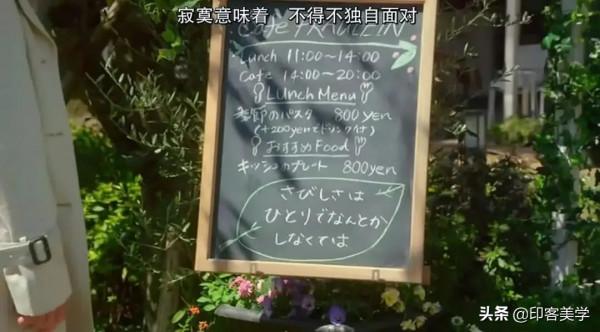 寂寞意味着 不得不独自面对
Cafe FRÄULEIN
Lunch 11:00~14:00
Cafe 14:00~20:00
Lunch Menu
季節のパスタ 800yen
(+200yenでドリンク付)
おすすめFood
キッシュプレート 800yen
さびしさは
ひとりでなんとか
しなくては
头条 @印客美学